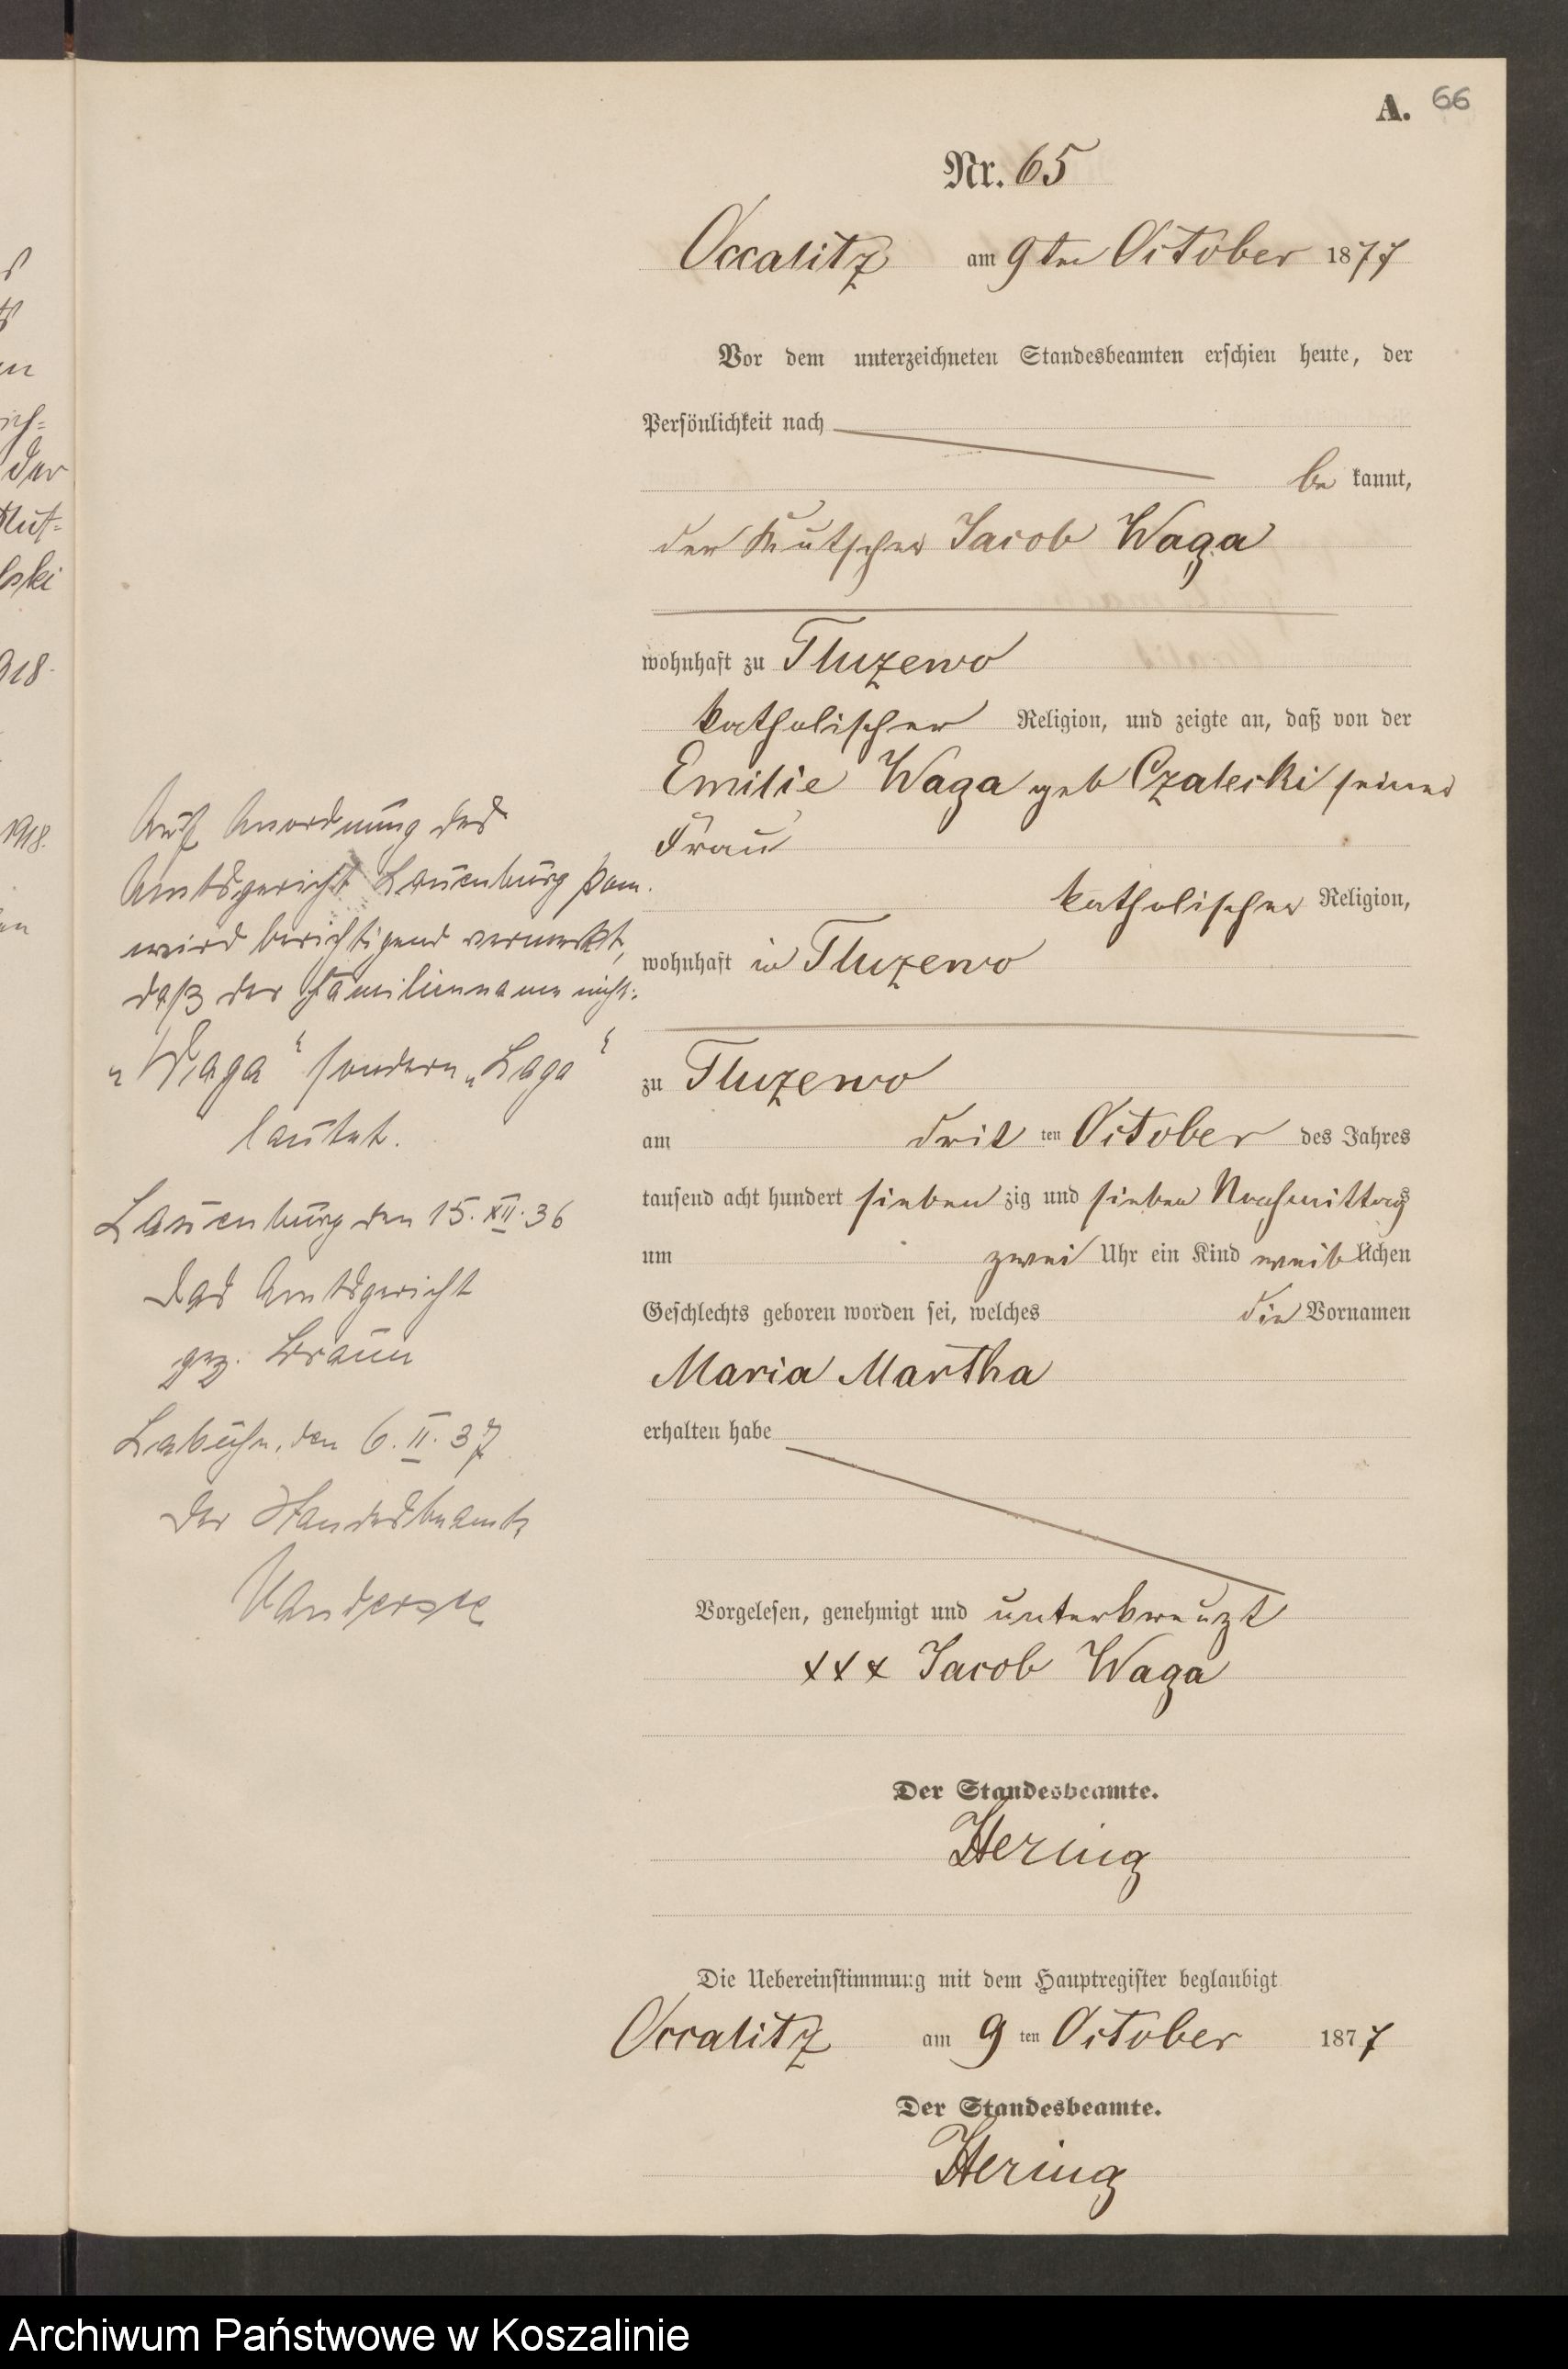 A. 66
Nr. 65
Occalitz am 9ten October 1877
Vor dem unterzeichneten Standesbeamten erschien heute, der
Persönlichkeit nach
be kannt,
der Kutscher Jacob Waga
wohnhaft zu Tluzewo
katholischer Religion, und zeigte an, daß von der
Emilie Waga geb Czaleski seiner
Frau
katholischer Religion,
wohnhaft in Tluzewo
zu Tluzewo
am drit ten October des Jahres
tausend acht hundert sieben zig und sieben Nachmittags
um zwei Uhr ein Kind weib lichen
Geschlechts geboren worden sei, welches die Vornamen
Maria Martha
erhalten habe
Vorgelesen, genehmigt und unterkreuzt
xxx Jacob Waga
Der Standesbeamte.
Hering
Die Uebereinstimmung mit dem Hauptregister beglaubigt
Occalitz am 9 ten October 1877
Der Standesbeamte.
Hering
Auf Anordnung des
Amtsgericht Lauenburg Pom.
wird berichtigend vermerkt,
daß der Familienname nicht
„Waga“ sondern „Laga“
lautet.
Lauenburg den 15. XII. 36
Das Amtsgericht
gez. Braun
Labuhn, den 6. II. 37
Der Standesbeamte
der
ski
918.
1918.
Archiwum Państwowe w Koszalinie